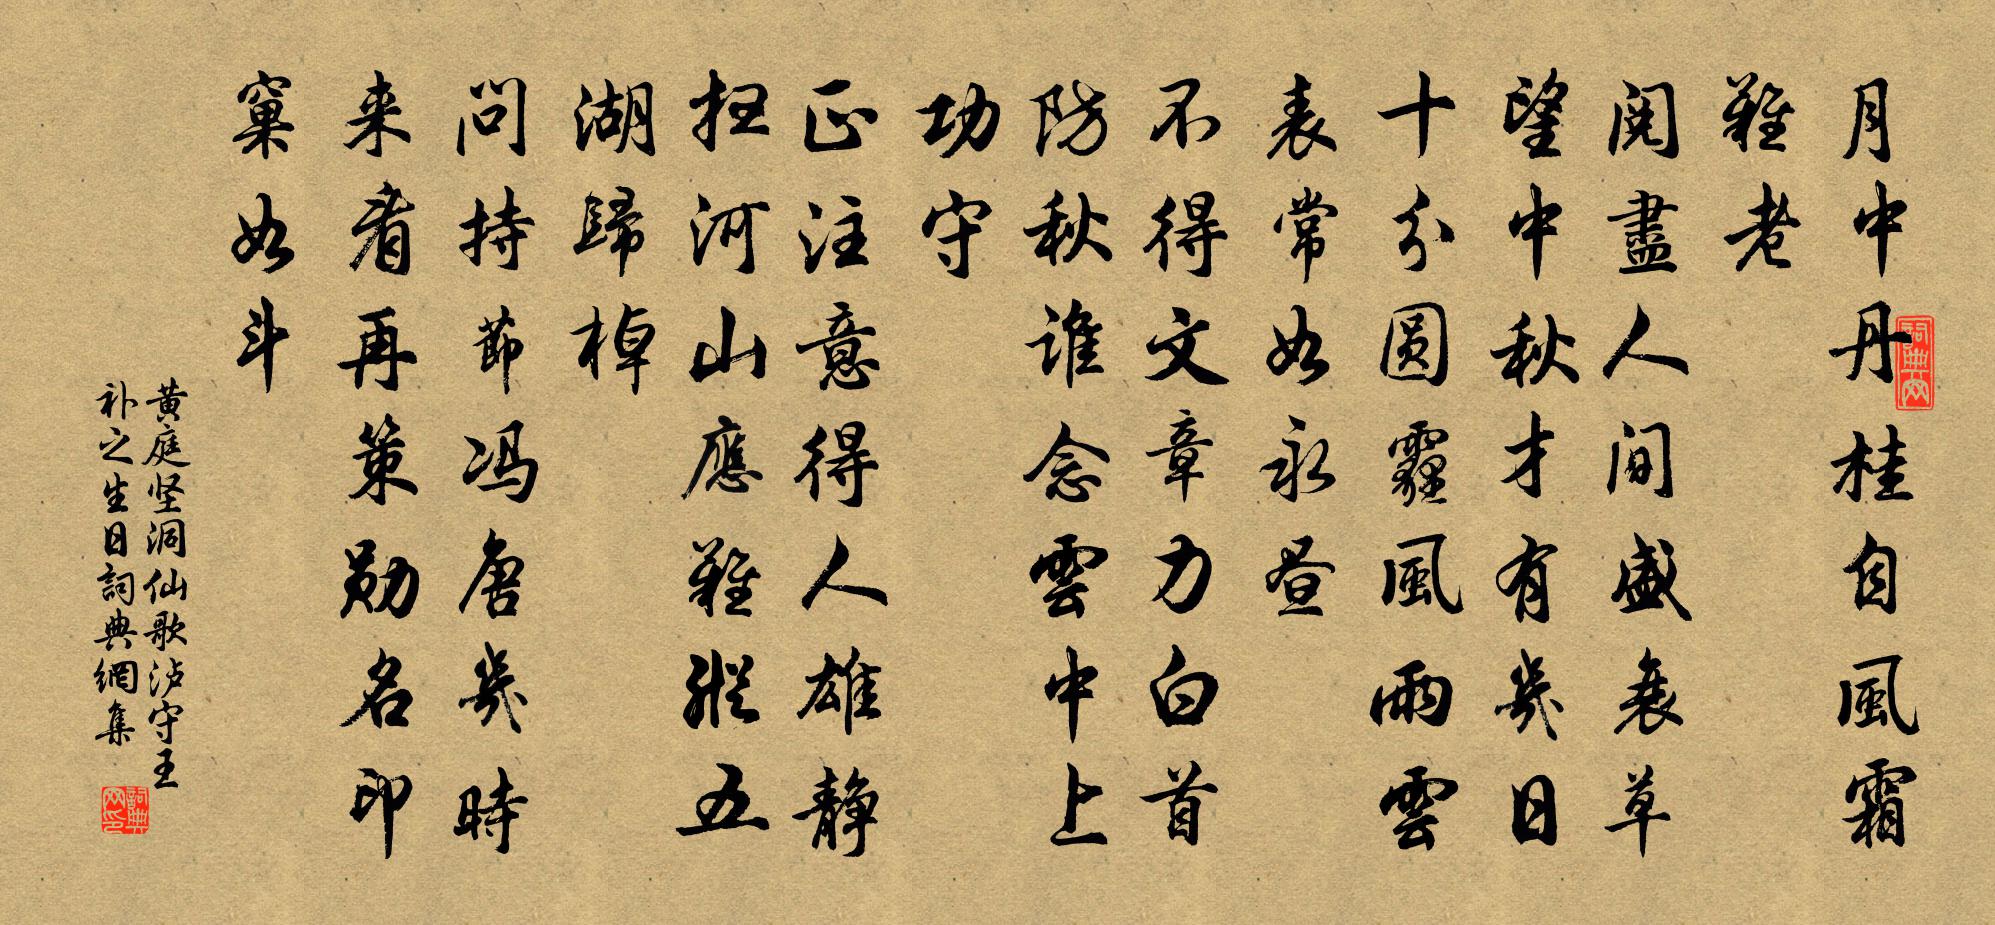 月中丹桂自風霜
難老
閱盡人間盛衰草
望中秋才有幾日
十分圓霾風雨雲
表常如永晝
不得文章力白首
防秋誰念雲中上
功守
正注意得人雄靜
掃河山應難縱五
湖歸棹
問持節冯唐幾時
来看再策勛名印
窠如斗
黄庭坚洞仙歌泸守王
补之生日詞典網集
詞典网
詞典网印